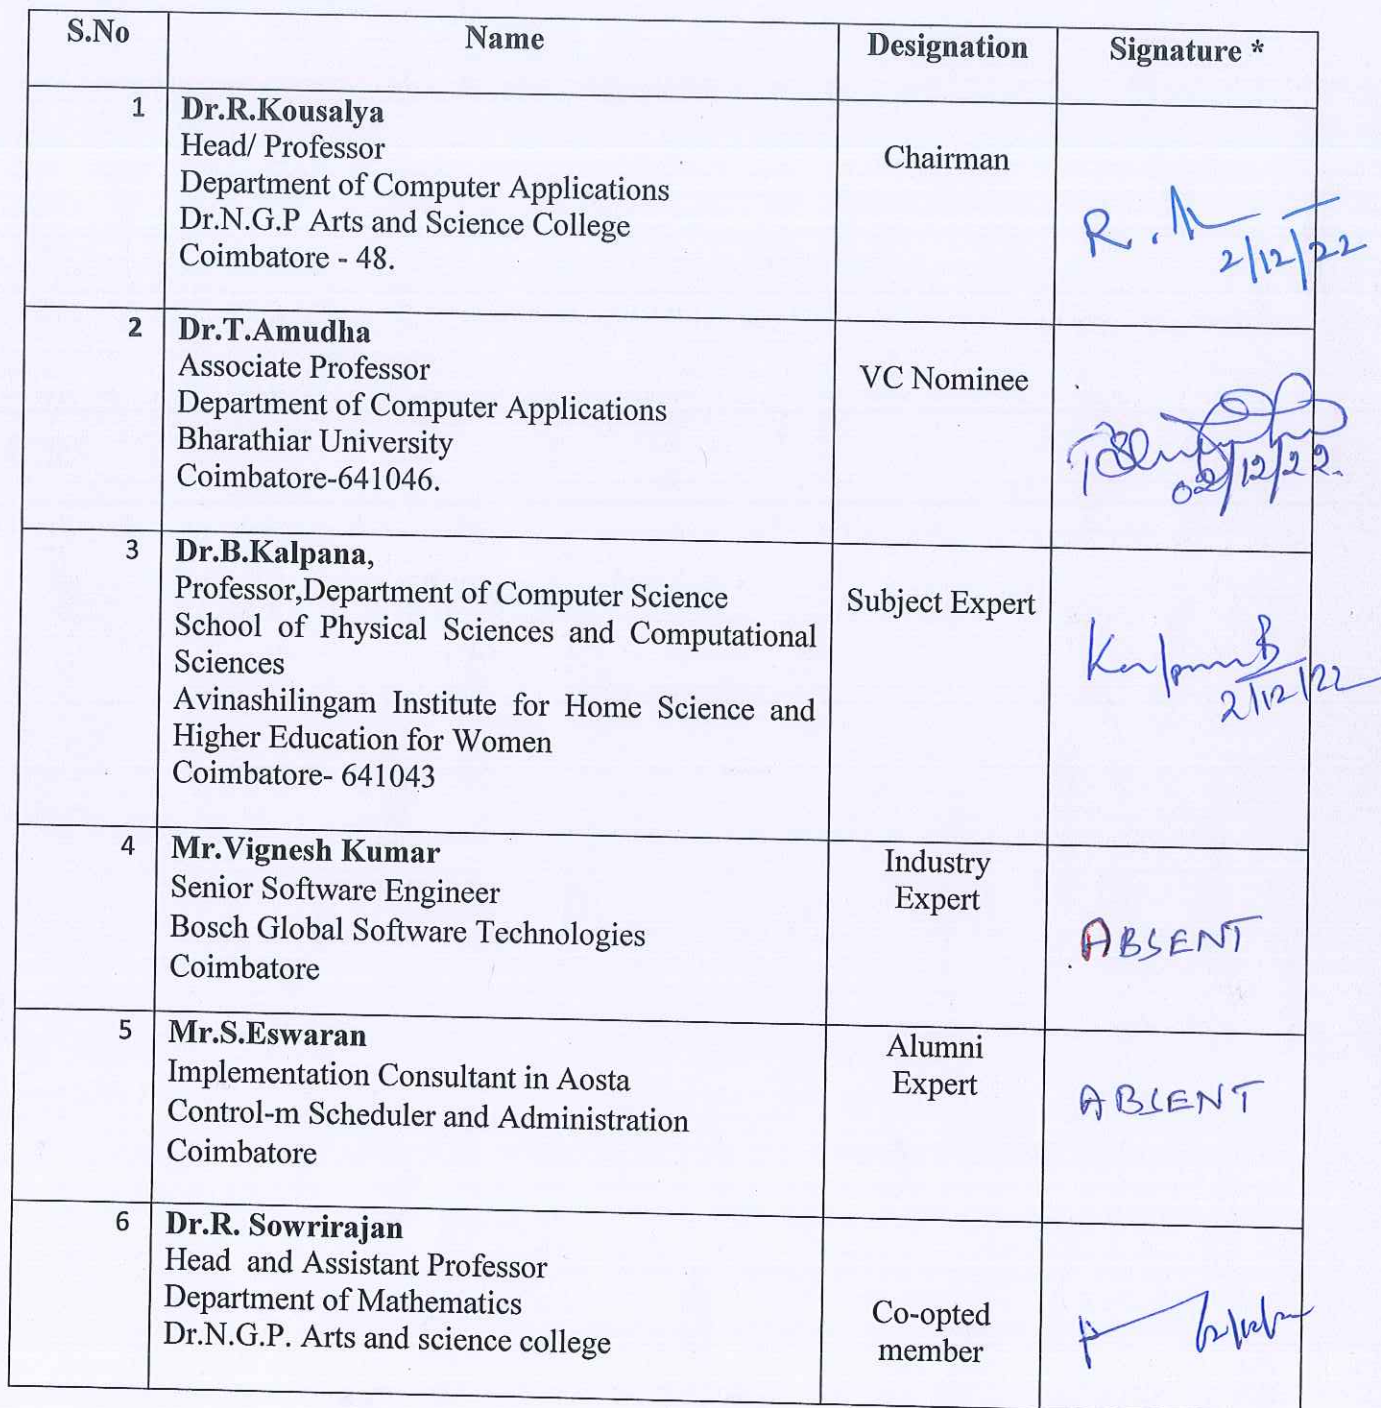 S.No Name Designation Signature *
1 Dr.R.Kousalya
Head/ Professor
Chairman
Department of Computer Applications
Dr.N.G.P Arts and Science College
Coimbatore - 48.
R.
2/12/22
2 Dr.T.Amudha
Associate Professor
VC Nominee
Department of Computer Applications
Bharathiar University
Coimbatore-641046.
02/12/22.
3 Dr.B.Kalpana,
Professor,Department of Computer Science
Subject Expert
School of Physical Sciences and Computational
Sciences
Avinashilingam Institute for Home Science and
Higher Education for Women
Coimbatore- 641043
Kalpana B
2/12/22
4 Mr.Vignesh Kumar
Senior Software Engineer
Bosch Global Software Technologies
Coimbatore
Industry
Expert
ABSENT
5 Mr.S.Eswaran
Implementation Consultant in Aosta
Control-m Scheduler and Administration
Coimbatore
Alumni
Expert
ABSENT
6 Dr.R. Sowrirajan
Head and Assistant Professor
Department of Mathematics
Dr.N.G.P. Arts and science college
Co-opted
member